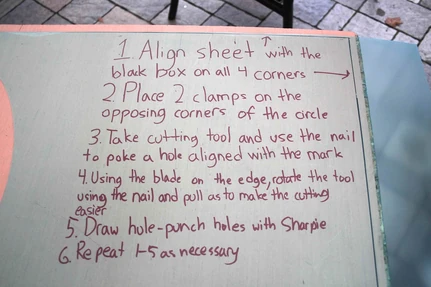 1. Align sheet ↑ with the
black box on all 4 corners →
2. Place 2 clamps on the
opposing corners of the circle
3. Take cutting tool and use the nail
to poke a hole aligned with the mark
4. Using the blade on the edge, rotate the tool
using the nail and pull as to make the cutting
easier
5. Draw hole-punch holes with Sharpie
6. Repeat 1-5 as necessary